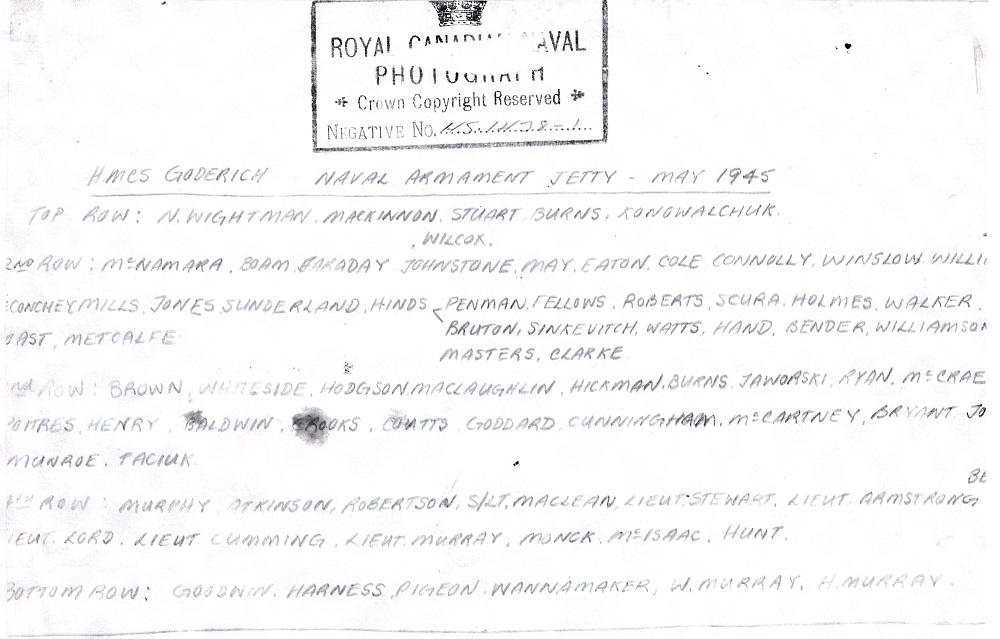 ROYAL CANADIAN NAVAL
PHOTOGRAPH
Crown Copyright Reserved
NEGATIVE No.
HMCS GODERICH NAVAL ARMAMENT JETTY - MAY 1945
TOP ROW: N. WIGHTMAN. MACKINNON. STUART. BURNS. KONOWALCHUK.
, WILCOX.
2ND ROW: McNAMARA, BOAM, FARADAY JOHNSTONE, MAY, EATON, COLE CONNOLLY, WINSLOW. WILLI
CONCHEY MILLS, JONES, SUNDERLAND, HINDS PENMAN. FELLOWS. ROBERTS, SCURA. HOLMES, WALKER.
BRUTON, SINKEVITCH, WATTS, HAND, BENDER, WILLIAMSON
AST, METCALFE
MASTERS, CLARKE
ROW: BROWN, WHITESIDE, HODGSON, MACLAUGHLIN, HICKMAN, BURNS. JAWORSKI, RYAN. McCRAE
POITRES, HENRY, BALDWIN, BROOKS, COUTTS. GODDARD, CUNNINGHAM, McCARTNEY, BRYANT. JO
MUNROE. TACIUK.
BE
ROW: MURPHY ATKINSON, ROBERTSON, S/LT. MACLEAN, LIEUT. STEWART, LIEUT. ARMSTRONG
IEUT. LORD. LIEUT CUMMING, LIEUT. MURRAY, MONCK. McISAAC, HUNT.
BOTTOM ROW: GOODWIN. HARNESS, PIGEON, WANNAMAKER, W. MURRAY, H. MURRAY.